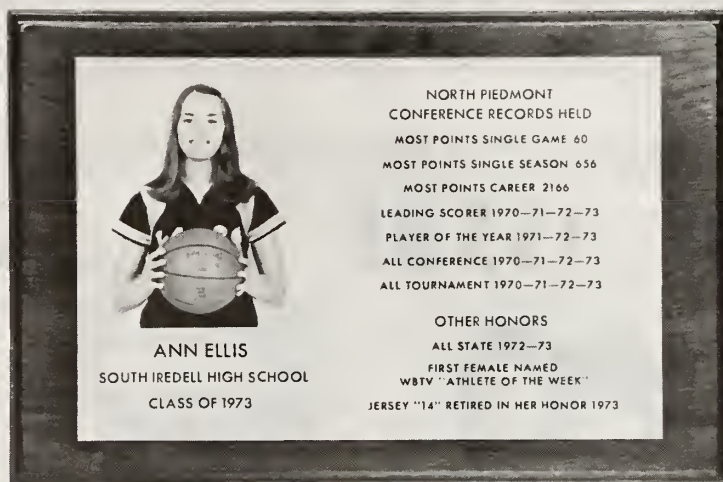 ANN ELLIS
SOUTH IREDELL HIGH SCHOOL
CLASS OF 1973
NORTH PIEDMONT
CONFERENCE RECORDS HELD
MOST POINTS SINGLE GAME 60
MOST POINTS SINGLE SEASON 656
MOST POINTS CAREER 2166
LEADING SCORER 1970—71—72—73
PLAYER OF THE YEAR 1971—72—73
ALL CONFERENCE 1970—71—72—73
ALL TOURNAMENT 1970—71—72—73
OTHER HONORS
ALL STATE 1972—73
FIRST FEMALE NAMED
WBTV "ATHLETE OF THE WEEK"
JERSEY "14" RETIRED IN HER HONOR 1973